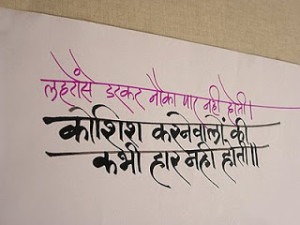 लहेरोंसे डरकर नौका पार नही होती।
कोशिश करनेवालों की
कभी हार नही होती॥